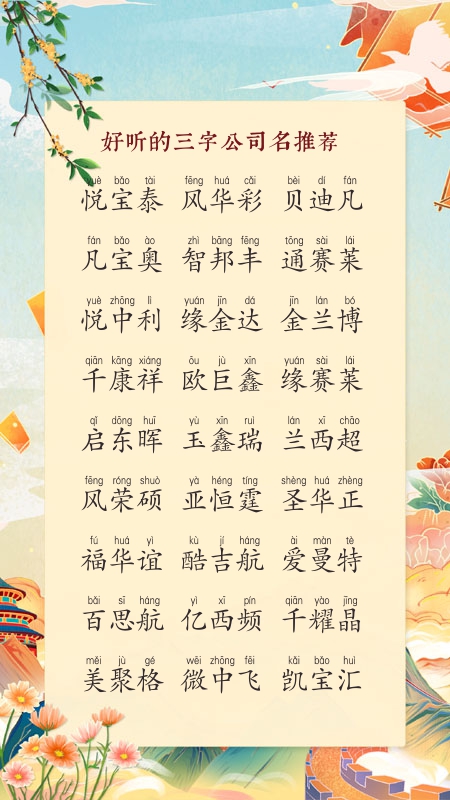 好听的三字公司名推荐
yuè bǎo tài fēng huá cǎi bèi dí fán
悦宝泰 风华彩 贝迪凡
fán bǎo ào zhì bāng fēng tōng sài lái
凡宝奥 智邦丰 通赛莱
yuè zhōng lì yuán jīn dá jīn lán bó
悦中利 缘金达 金兰博
qiān kāng xiáng ōu jù xīn yuán sài lái
千康祥 欧巨鑫 缘赛莱
qǐ dōng huī yù xīn ruì lán xī chāo
启东晖 玉鑫瑞 兰西超
fēng róng shuò yà héng tíng shèng huá zhèng
风荣硕 亚恒霆 圣华正
fú huá yì kù jí háng ài màn tè
福华谊 酷吉航 爱曼特
bǎi sī háng yì xī pín qiān yào jīng
百思航 亿西频 千耀晶
měi jù gé wēi zhōng fēi kǎi bǎo huì
美聚格 微中飞 凯宝汇